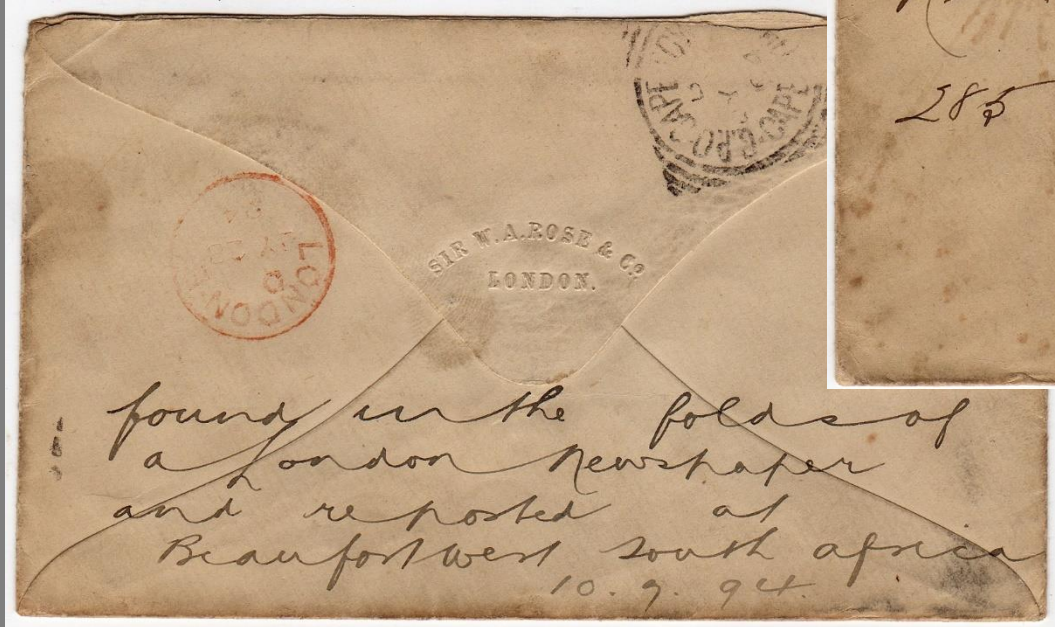 G.P.O. CAPE
LONDON
94
SIR W. A. ROSE & Co.
LONDON.
285
found in the folds of
a London Newspaper
and reposted at
Beaufort West South africa
10. 9. 94.